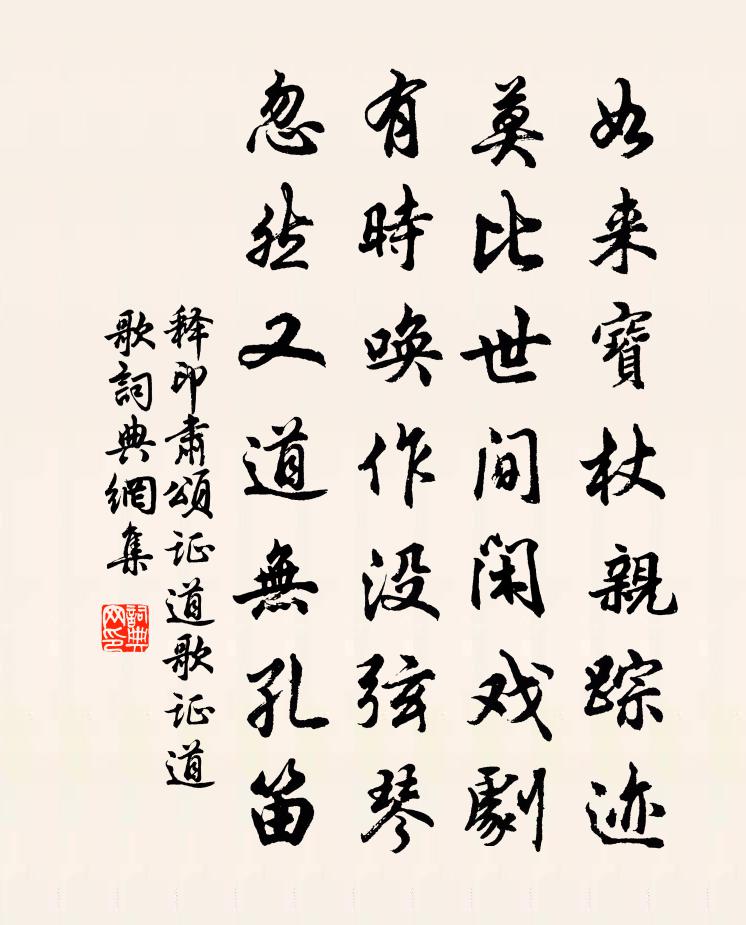 如来寶杖親踪迹
莫比世间闲戏劇
有時唤作没弦琴
忽然又道無孔笛
释印肃颂证道歌证道
歌詞典網集
詞典
网印